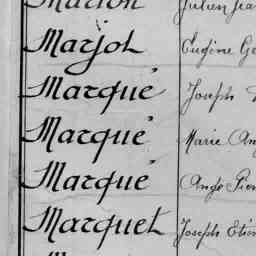 Marion Julien Jea
Marjol Eugène Ge
Marqué Joseph
Marqué Marie Ang
Marqué Ange Pier
Marquet Joseph Etien